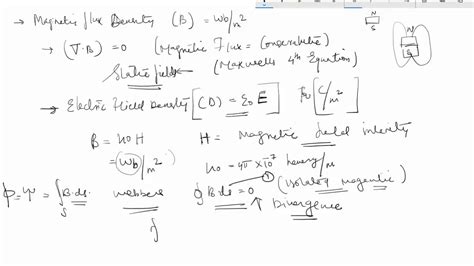 → Magnetic flux Density (B) = Wb/m²
→ (∇·B) = 0 (Magnetic Flux = Conservative)
Static fields (Maxwells 4th Equation)
→ Electric Field Density [(D) = ε₀ E] [C/m²]
B = μ₀ H H = Magnetic field intensity
= Wb/m² μ₀ = 4π × 10⁻⁷ henery/m
φ = ψ = ∫ B·ds. webbers ∮ B·ds = 0 (Isolated magnetic)
S
∮ ↑ Divergence
N
S
N
S